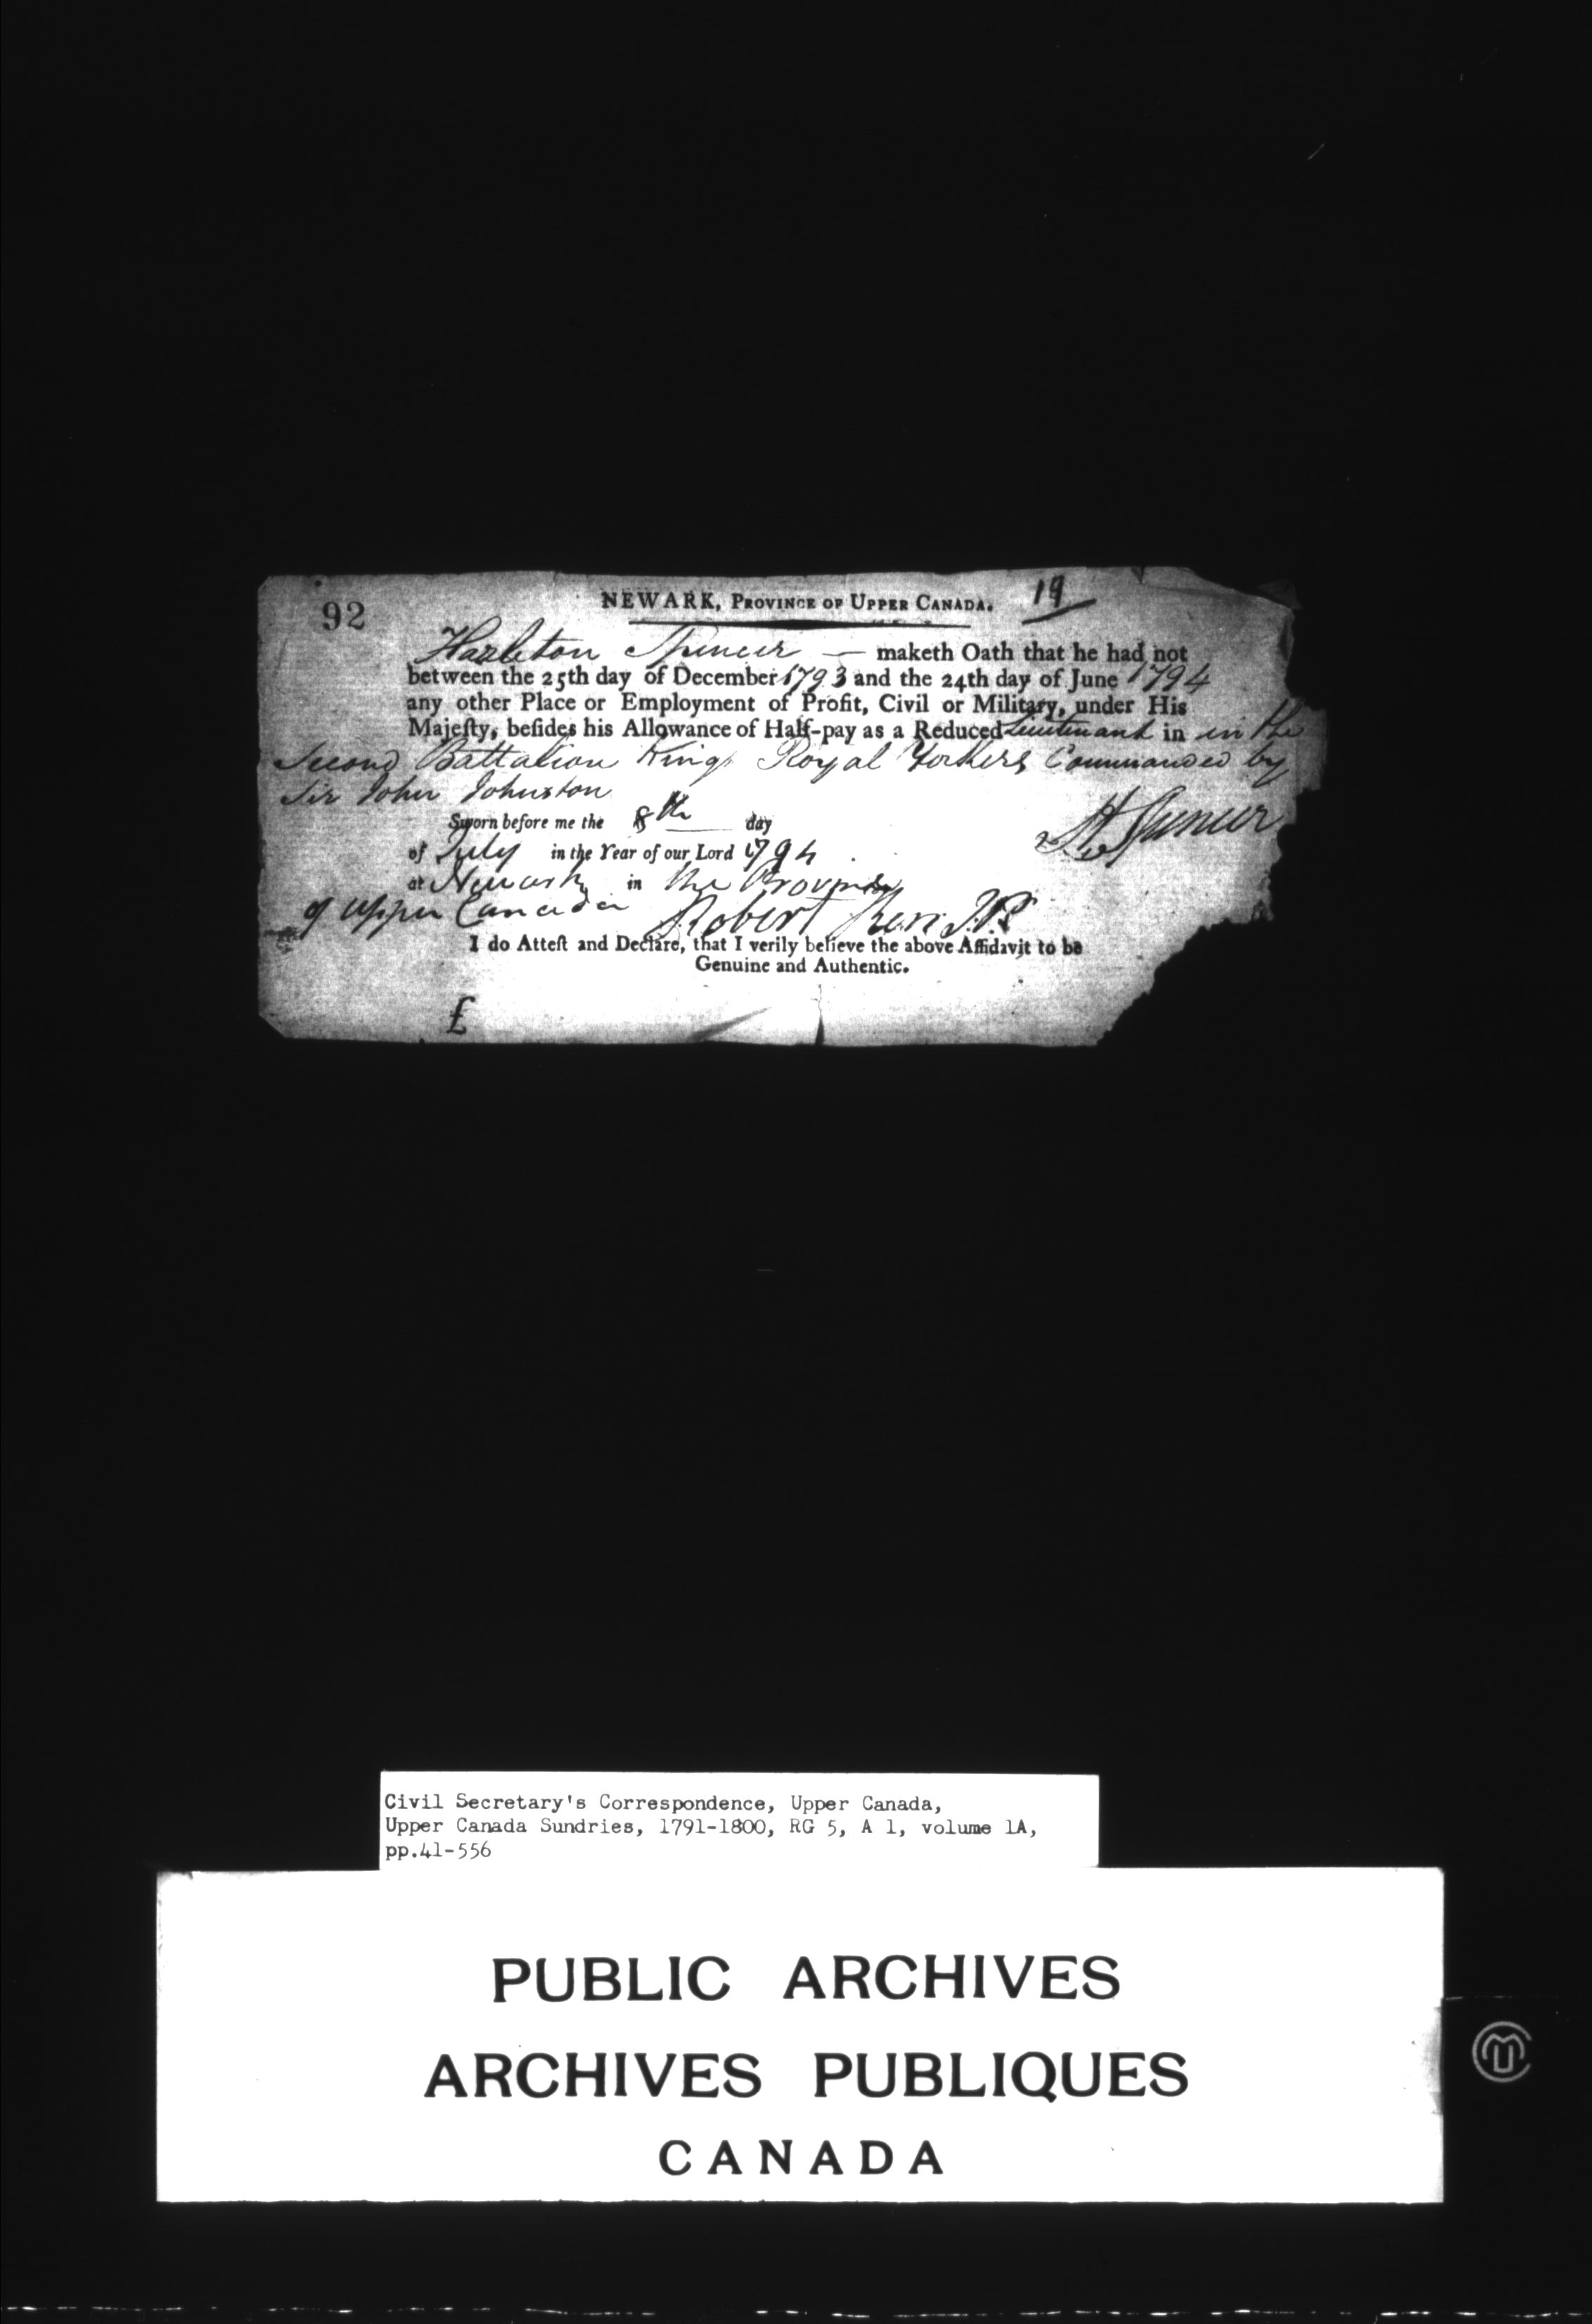 92
NEWARK, PROVINCE OF UPPER CANADA. 19
Hazleton Spencer — maketh Oath that he had not
between the 25th day of December 1793 and the 24th day of June 1794
any other Place or Employment of Profit, Civil or Military, under His
Majeſty, beſides his Allowance of Half-pay as a Reduced Lieutenant in in the
Second Battalion Kings Royal Yorkers Commanded by
Sir John Johnston
Sworn before me the 8th day
H Spencer
of July in the Year of our Lord 1794
at Newark in the Province
of Upper Canada Robert Kerr J.P.
I do Atteſt and Declare, that I verily believe the above Affidavit to be
Genuine and Authentic.
£
Civil Secretary's Correspondence, Upper Canada,
Upper Canada Sundries, 1791-1800, RG 5, A 1, volume 1A,
pp.41-556
PUBLIC ARCHIVES
ARCHIVES PUBLIQUES
CANADA